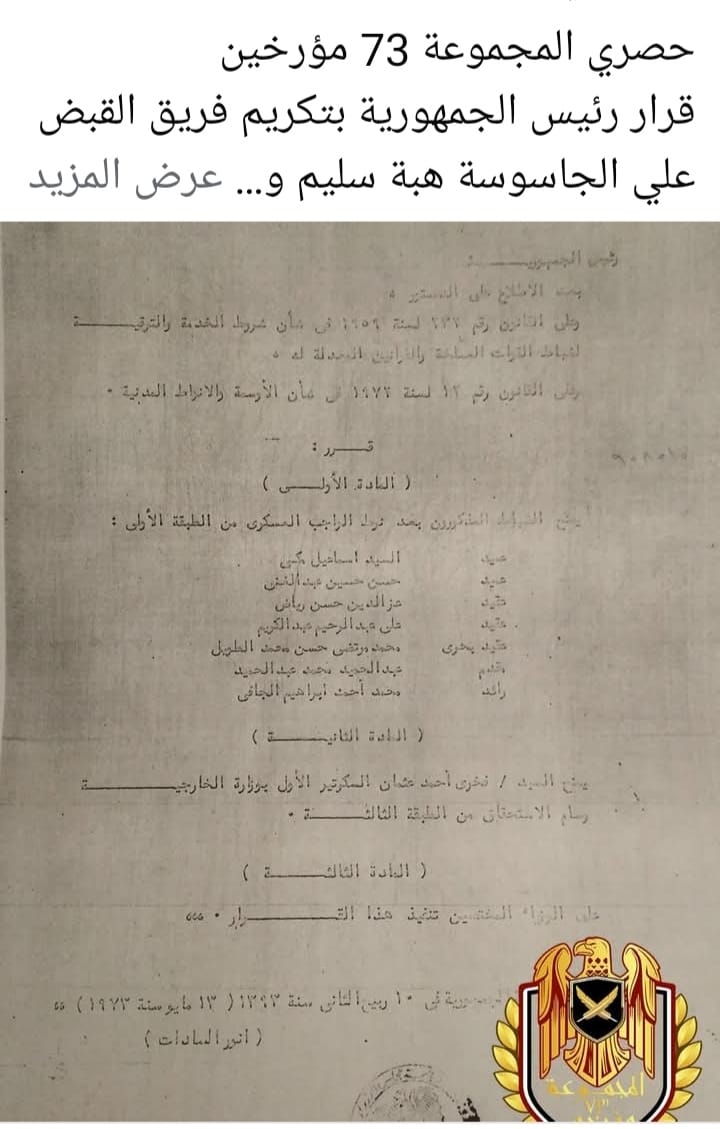 حصري المجموعة 73 مؤرخين
قرار رئيس الجمهورية بتكريم فريق القبض
علي الجاسوسة هبة سليم و... عرض المزيد
رئيس الجمهوريـــــــة
بعد الاطلاع على الدستور ٠
وعلى القانون رقم ٢٣٢ لسنة ١٩٥٩ فى شأن شروط الخدمة والترقيـــــــة
لضباط القوات المسلحة والقوانين المعدلة له ٠
وعلى القانون رقم ١٢ لسنة ١٩٧٢ فى شأن الأوسمة والانواط المدنية ٠
قــــرر :
( المادة الأولــــى )
يمنح الضباط المذكورون بعد نوط الواجب العسكرى من الطبقة الأولى :
عميد السيد اسماعيل
عميد حسن حسين عبد الغنى
عقيد عز الدين حسن رياض
عقيد على عبد الرحيم عبد الكريم
عقيد بحرى محمد مرتضى حسن محمد الطويل
مقدم عبد الحميد محمد عبد الحميد
رائد محمد أحمد ابراهيم الجافى
( المادة الثانيــــــــة )
يمنح السيد / فخرى أحمد عثمان السكرتير الأول بوزارة الخارجيـــــــــة
وسام الاستحقاق من الطبقة الثالثـــــــة ٠
( المادة الثالثــــــــة )
على الوزراء المختصين تنفيذ هذا القـــــــــرار ٠
الجمهورية فى ١٠ ربيع الثانى سنة ١٣٩٣ ( ١٣ مايو سنة ١٩٧٣ )
( انور السادات )
المجموعة
٧٣
مؤرخين